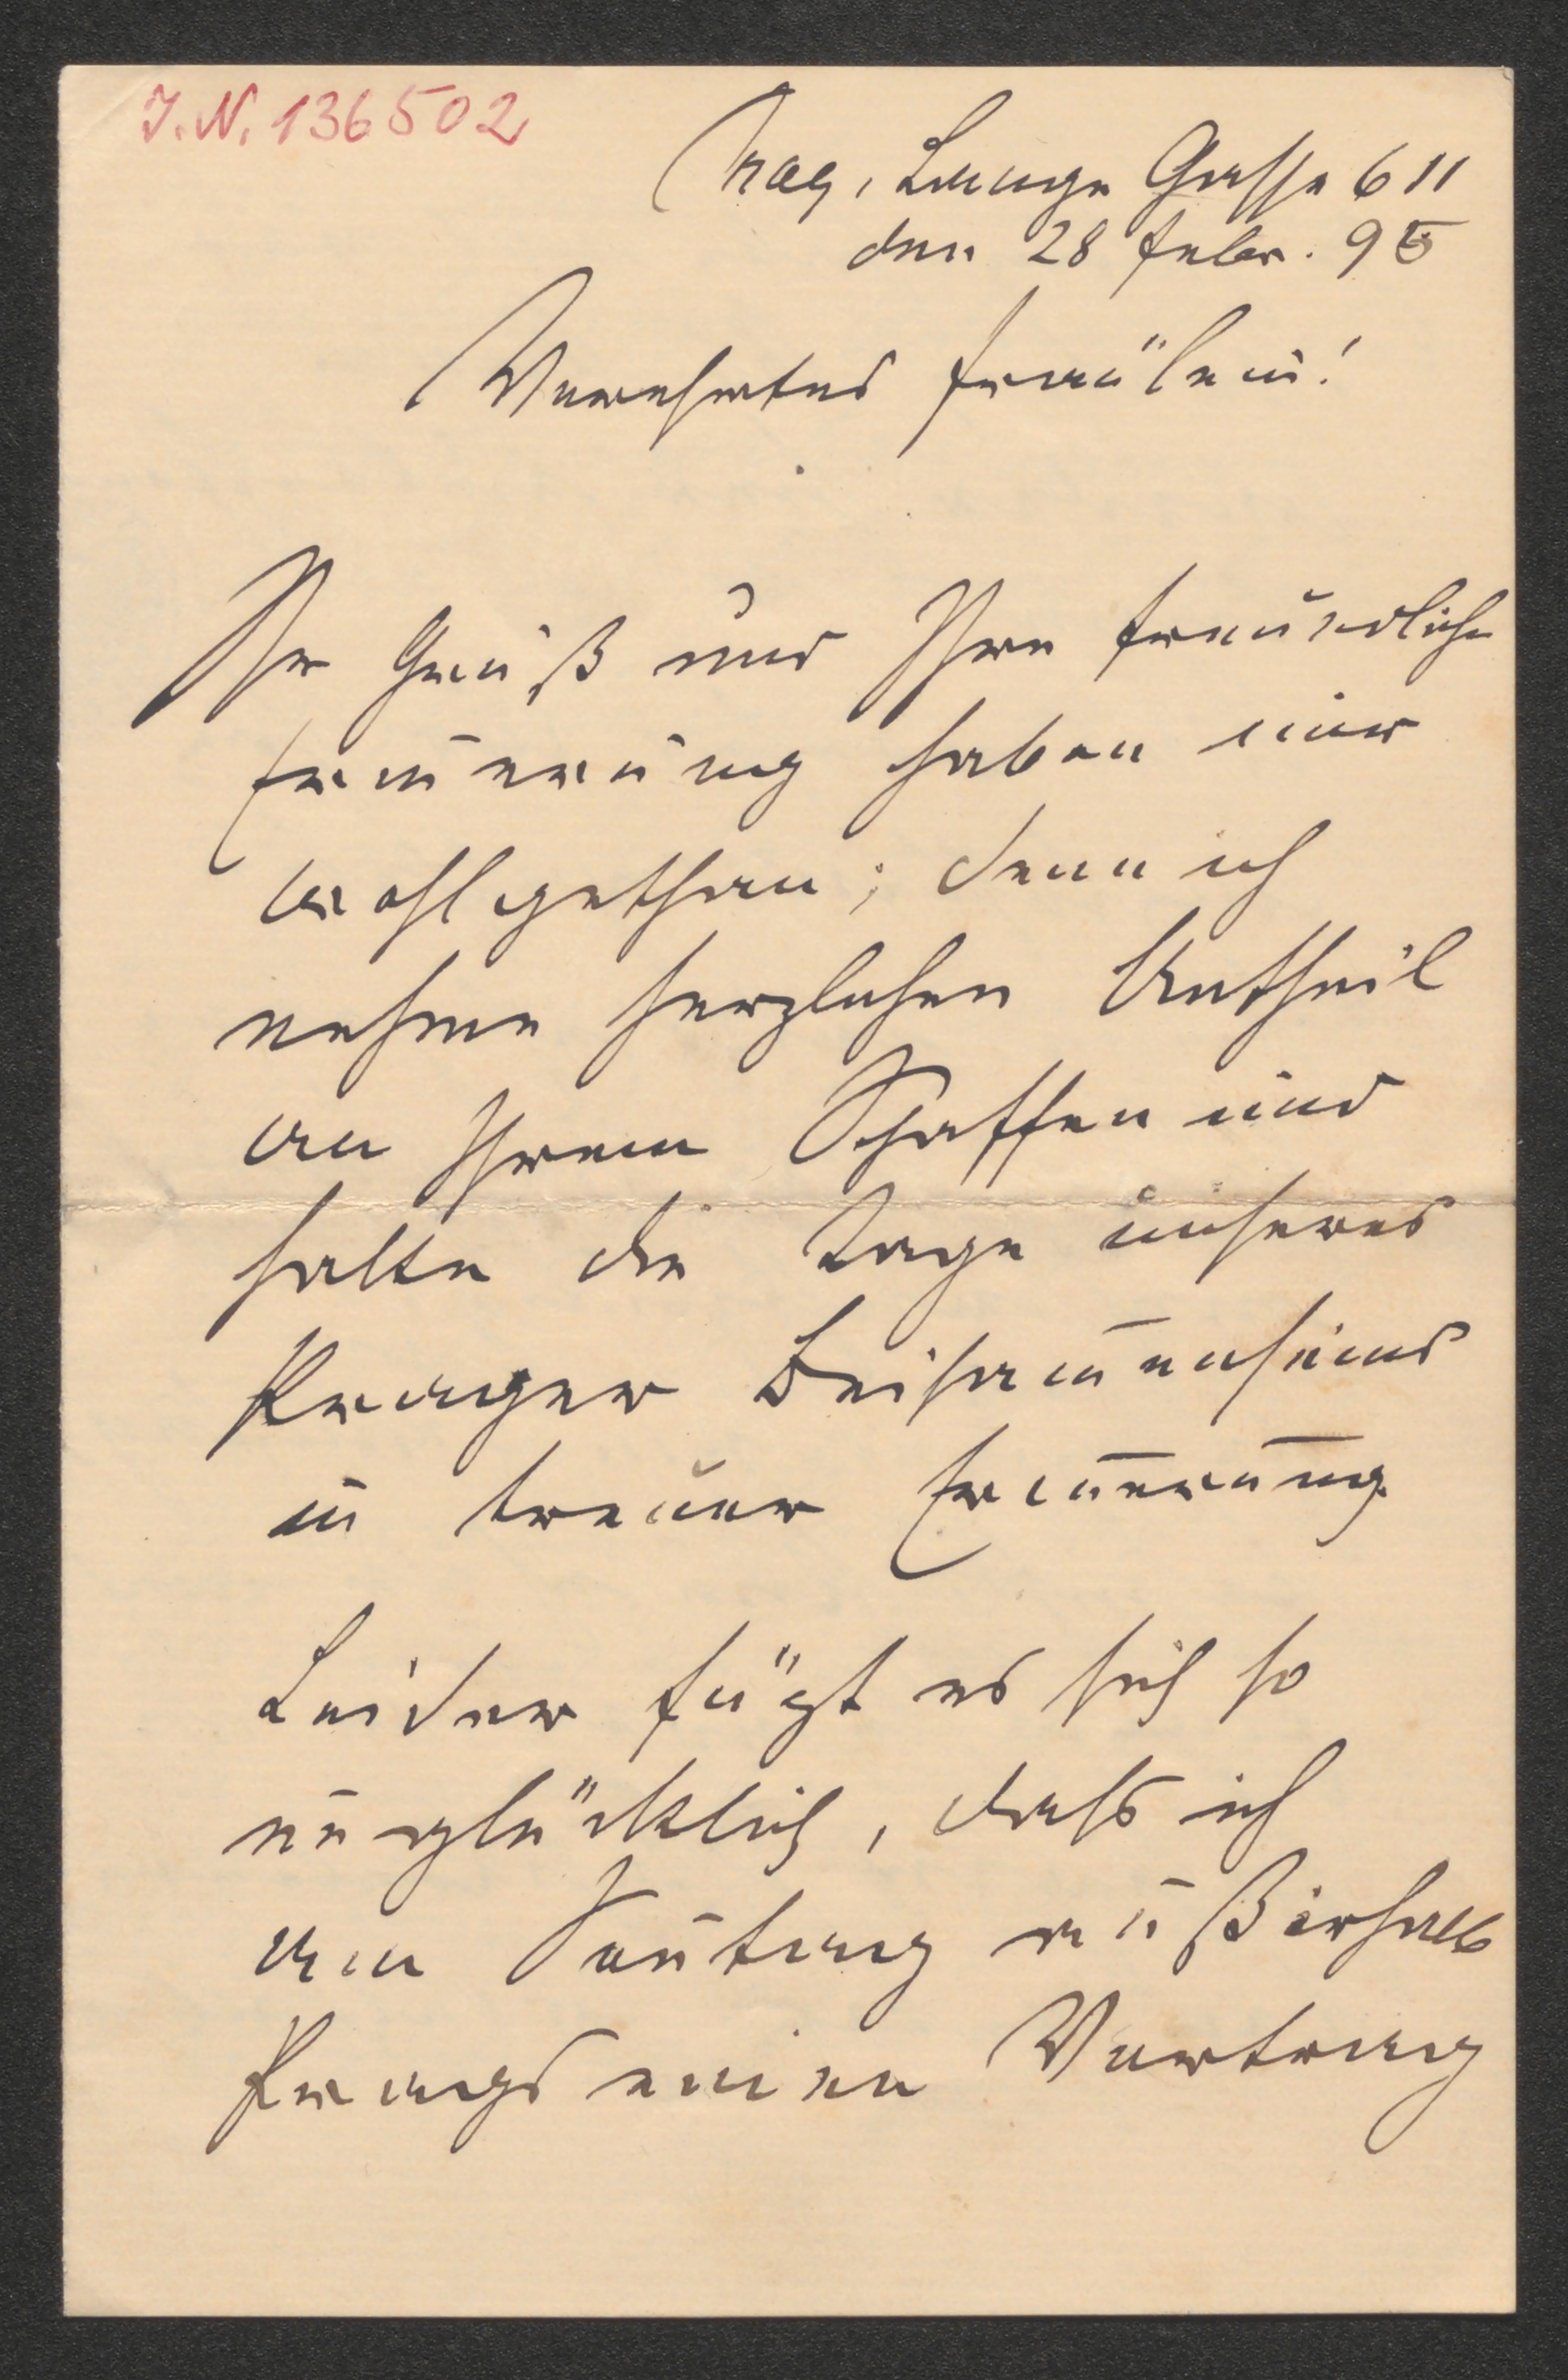 J.N. 136502
Prag, Lange Gasse 611
den 28 Febr. 95
Verehrtes Fräulein!
Ihr Gruß und Ihre freundliche
Erin̄erung haben mir
wohlgethan; denn ich
nehme herzlichen Antheil
an Ihrem Schaffen und
halte die Tage unseres
Prager Beisam̄enseins
in treuer Erin̄erung
Leider fügt es sich so
unglücklich, dass ich
am Son̄tag außerhalb
Prags einen Vortrag